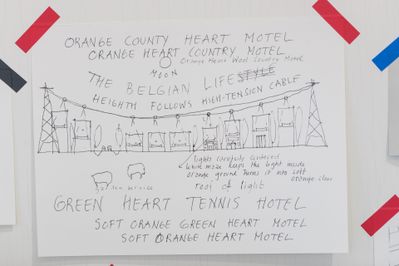 ORANGE COUNTY HEART MOTEL
ORANGE HEART COUNTRY MOTEL
Orange Heart Wood Country Motel
MOON
THE BELGIAN LIFESTYLE
HEIGHTH FOLLOWS HIGH-TENSION CABLE
lights carefully
which maze keeps the light inside
orange ground turns it into soft
orange
roof of light
service
GREEN HEART TENNIS HOTEL
SOFT ORANGE GREEN HEART MOTEL
SOFT ORANGE HEART MOTEL